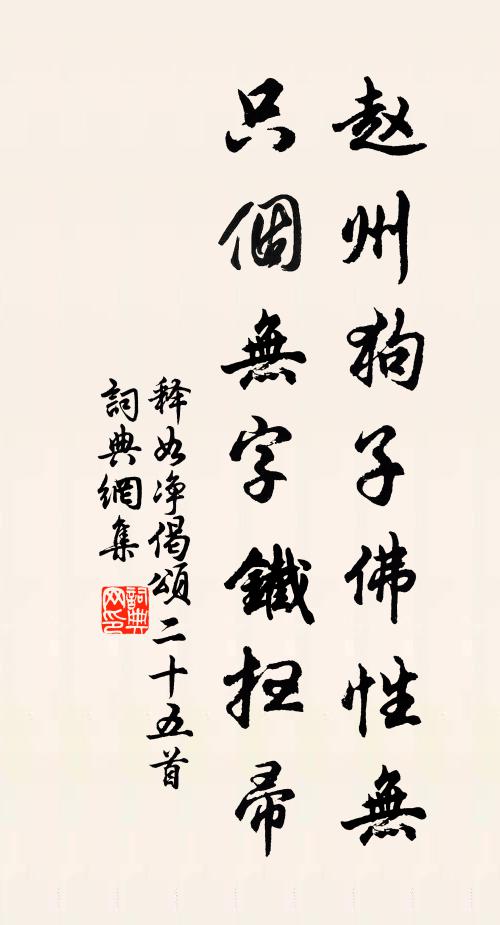 赵州狗子佛性無
只個無字鐵扫帚
释如净偈頌二十五首
詞典網集
詞典网印